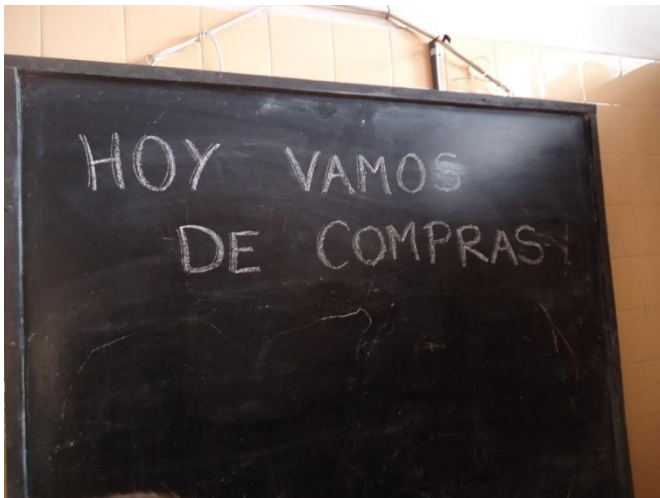 HOY VAMOS
DE COMPRAS